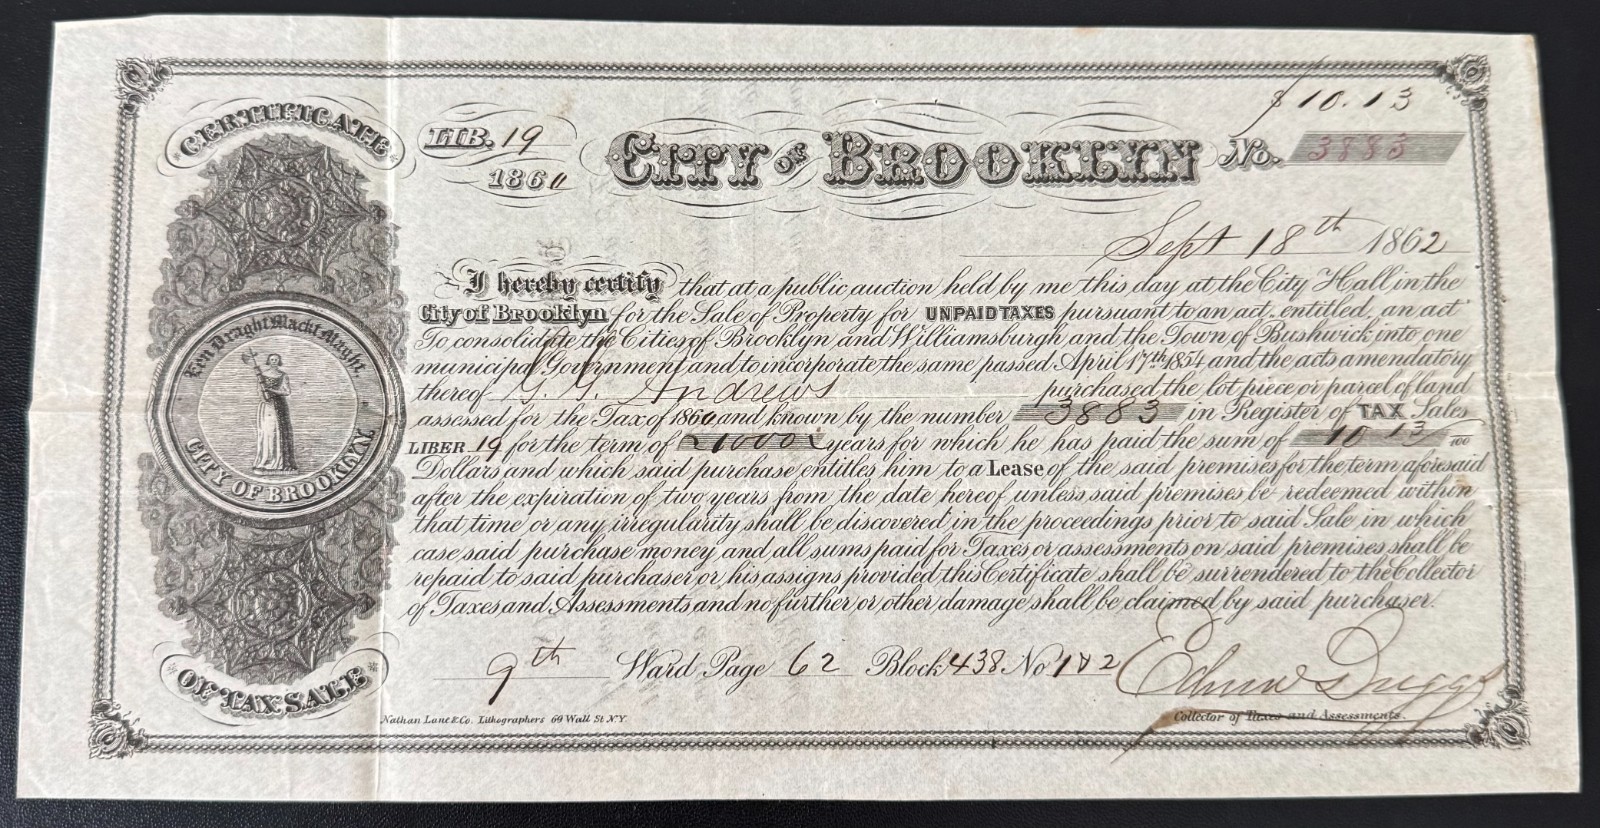 CERTIFICATE
Een Draght Mackt Maght.
CITY OF BROOKLYN
OF TAX SALE
$10.13
LIB. 19
1860
CITY OF BROOKLYN
No. 3883
Sept 18th 1862
I hereby certify that at a public auction held by me this day at the City Hall in the
City of Brooklyn for the Sale of Property for UNPAID TAXES pursuant to an act, entitled, an act
To consolidate the Cities of Brooklyn and Williamsburgh and the Town of Bushwick into one
municipal Government and to incorporate the same passed April 17th 1854 and the acts amendatory
thereof G. G. Andrews purchased the lot piece or parcel of land
assessed for the Tax of 1860 and known by the number 3883 in Register of TAX Sales
LIBER 19 for the term of 1000 years for which he has paid the sum of 10 13/100
Dollars and which said purchase entitles him to a Lease of the said premises for the term aforesaid
after the expiration of two years from the date hereof, unless said premises be redeemed within
that time or any irregularity shall be discovered in the proceedings prior to said Sale in which
case said purchase money and all sums paid for Taxes or assessments on said premises shall be
repaid to said purchaser or his assigns provided this Certificate shall be surrendered to the Collector
of Taxes and Assessments and no further or other damage shall be claimed by said purchaser.
9th Ward Page 62 Block 438 No 182
Edwin Driggs
Nathan Lane & Co. Lithographers 69 Wall St N.Y.
Collector of Taxes and Assessments.